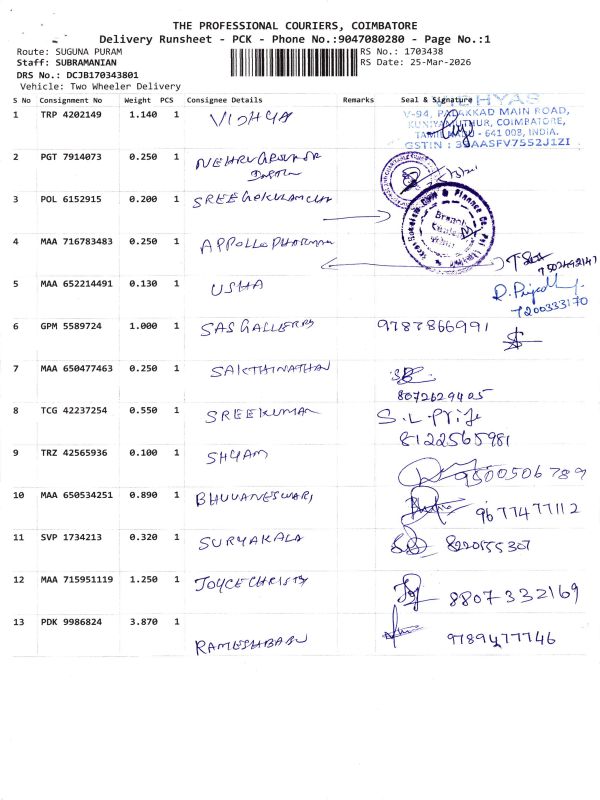 THE PROFESSIONAL COURIERS, COIMBATORE
Delivery Runsheet - PCK - Phone No.:9047080280 - Page No.:1
Route: SUGUNA PURAM
RS No.: 1703438
Staff: SUBRAMANIAN
RS Date: 25-Mar-2026
DRS No.: DCJB170343801
Vehicle: Two Wheeler Delivery
S No Consignment No Weight PCS Consignee Details Remarks Seal & Signature
VIDHYAS
1 TRP 4202149 1.140 1 VIDHYA
V-94, PALAKKAD MAIN ROAD,
KUNIYAMUTHUR, COIMBATORE,
TAMIL NADU - 641 008, INDIA.
GSTIN : 33AASFV7552J1ZI
2 PGT 7914073 0.250 1 NEHRU
3 POL 6152915 0.200 1 SREE GOKULAM
Branch
4 MAA 716783483 0.250 1 APPOLLO PHARMA
7502492147
5 MAA 652214491 0.130 1 USHA
7200333170
6 GPM 5589724 1.000 1 SAS 9787866991
7 MAA 650477463 0.250 1 SAKTHINATHAN
8072629405
8 TCG 42237254 0.550 1 SREEKUMAR S.L.
8122565981
9 TRZ 42565936 0.100 1 SHYAM
9500506789
10 MAA 650534251 0.890 1 BHUVANESWARI
9677477112
11 SVP 1734213 0.320 1 SURYAKALA
12 MAA 715951119 1.250 1 JOYCE CHRISTY
8807332169
13 PDK 9986824 3.870 1
RAMESHBABU 9789477746